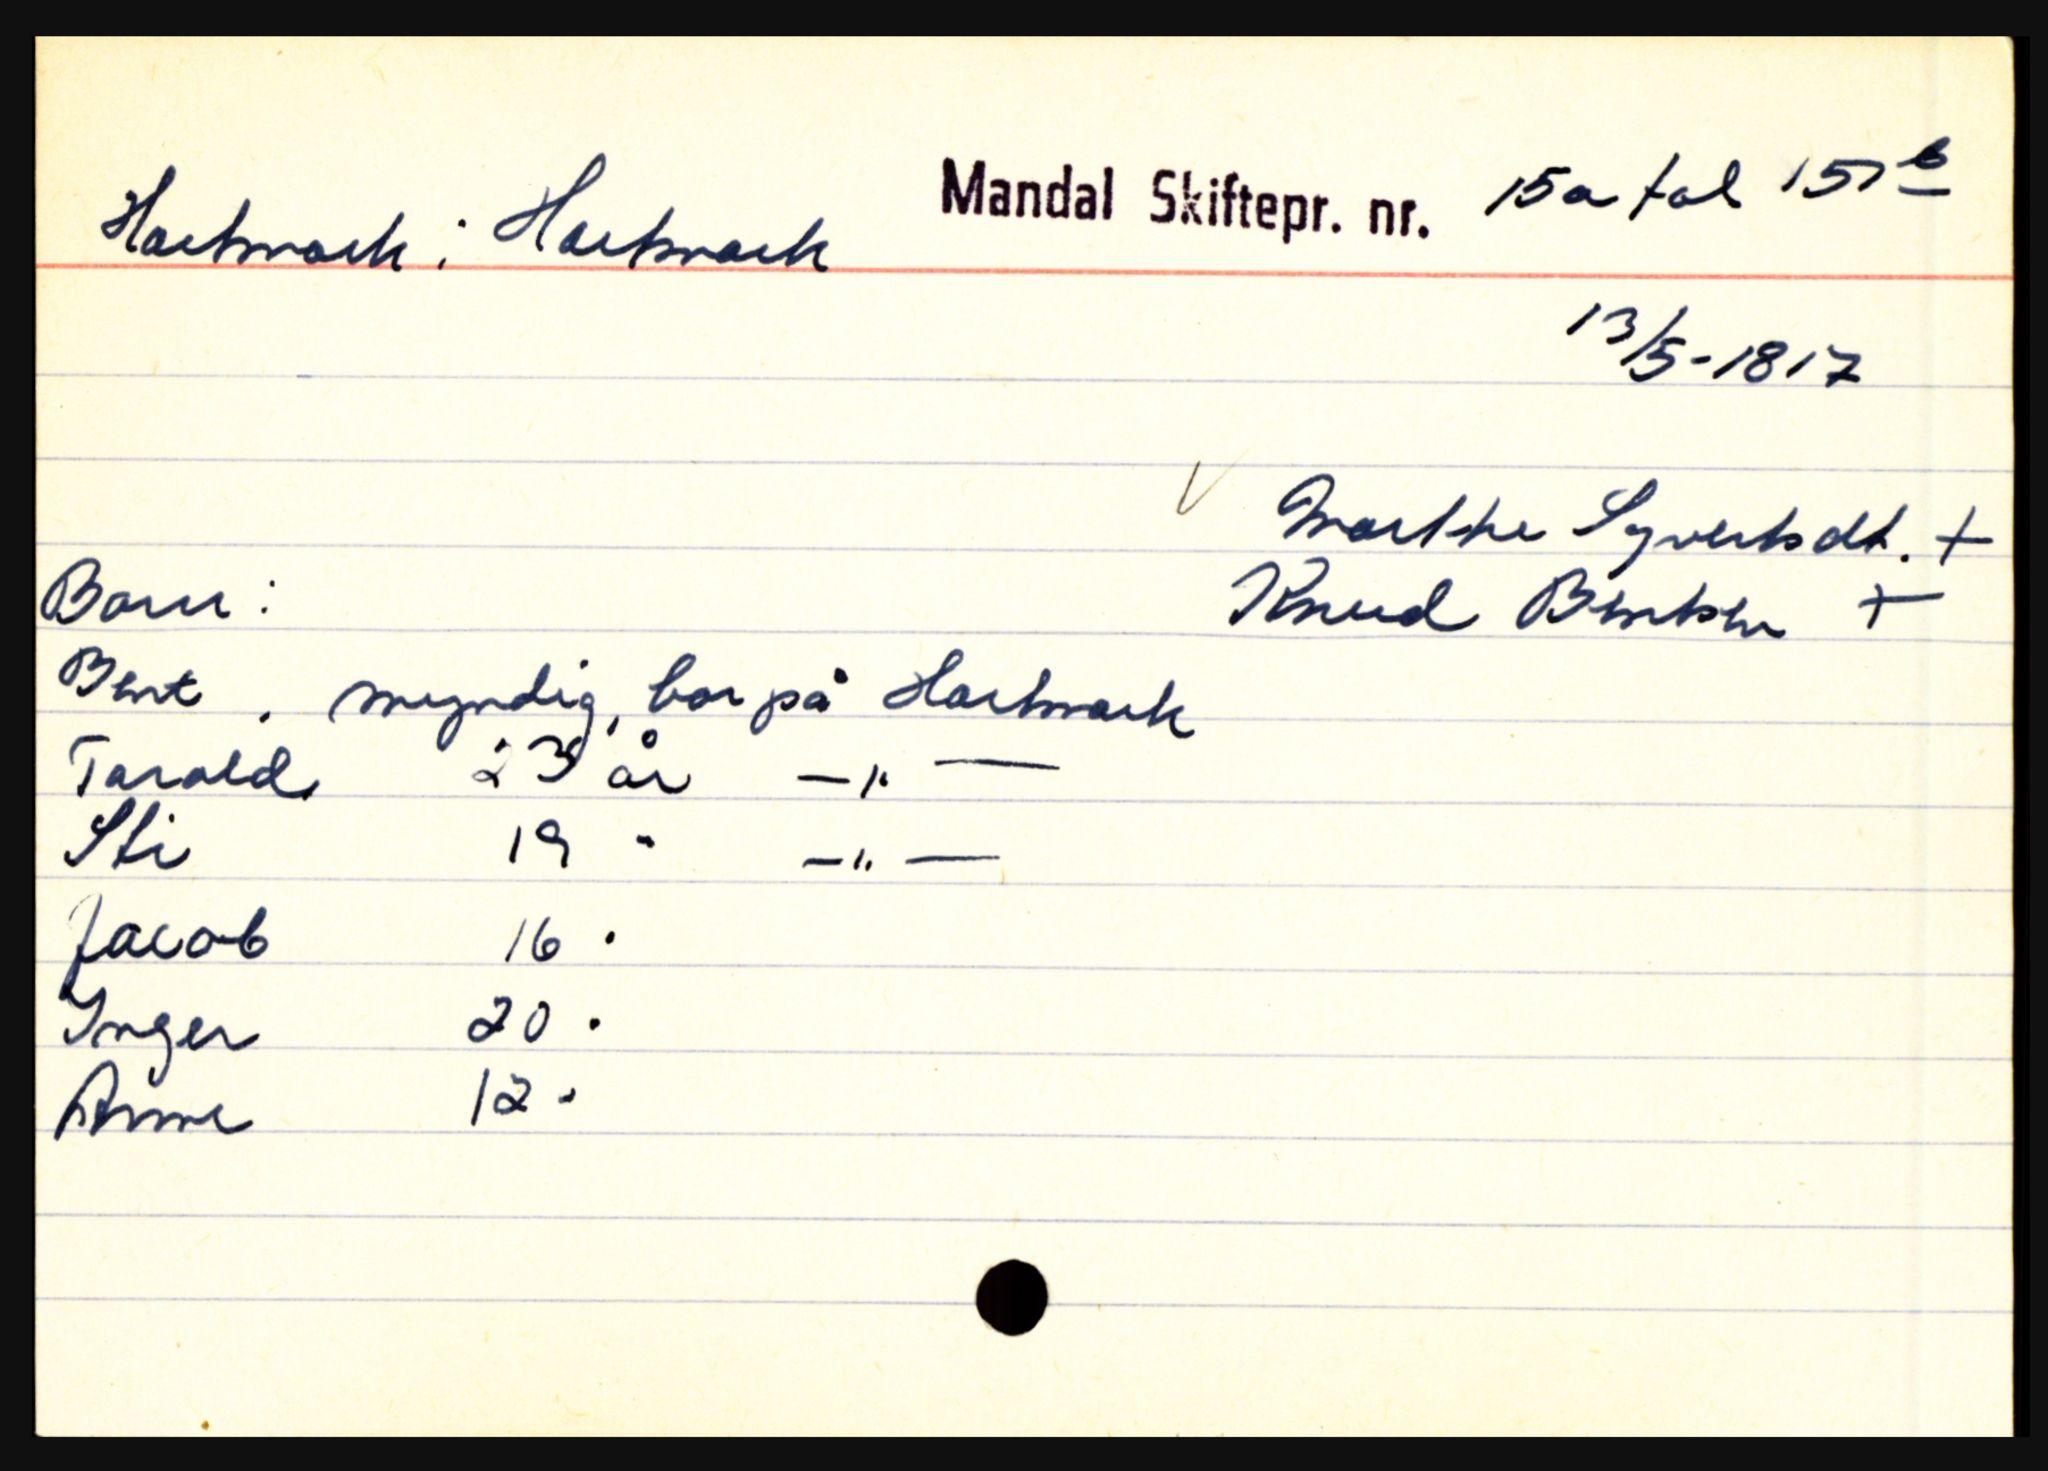 Hartmark i Hartmark Mandal Skiftepr. nr. 15a fol 157b
13/5-1817
Marthe Syvertsdt. +
Knud Bentsen +
Barn:
Bent, myndig, bor på Hartmark
Tarald 23 år —"—
Sti 19 " —"—
Jacob 16 "
Inger 20 "
Anne 12 "